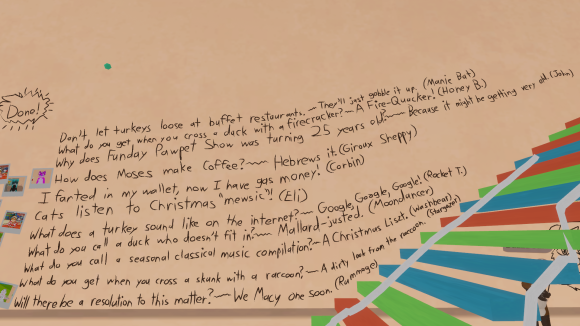 Done!
Don't let turkeys loose at buffet restaurants. — They'll just gobble it up. (Manie Bat)
What do you get when you cross a duck with a firecracker? — A Fire-Quacker! (Honey B.)
Why does Funday Pawpet Show was turning 25 years old? — Because it might be getting very old. (John)
How does Moses make Coffee? — Hebrews it. (Giroux Sheppy)
I farted in my wallet, now I have gas money! (Corbin)
Cats listen to Christmas "mewsic"! (Eli)
What does a turkey sound like on the internet? — Google, Google, Google! (Rocket T.)
What do you call a duck who doesn't fit in? — Mallard-justed. (Moondancer)
What do you call a seasonal classical music compilation? — A Christmas Liszt. (Washbear)
What do you get when you cross a skunk with a raccoon? — A dirty look from the raccoon. (Stargazer)
Will there be a resolution to this matter? — We Macy one soon. (Rummage)